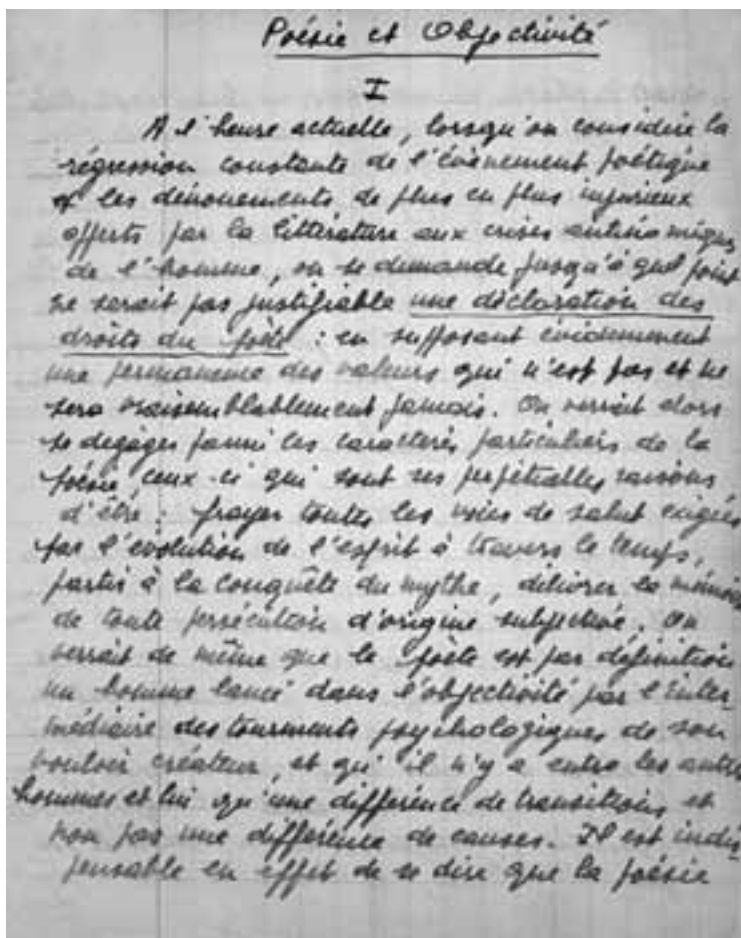 Poésie et Objectivité
I
A l'heure actuelle, lorsqu'on considère la
régression constante de l'évènement poétique
et les dénouements de plus en plus injurieux
offerts par la littérature aux crises antinomiques
de l'homme, on se demande jusqu'à quel point
ne serait pas justifiable une déclaration des
droits du poète : en supposant évidemment
une permanence des valeurs qui n'est pas et ne
sera vraisemblablement jamais. On verrait alors
se dégager parmi les caractères particuliers de la
poésie ceux-ci qui sont ses perpétuelles raisons
d'être : frayer toutes les voies de salut exigées
par l'évolution de l'esprit à travers le temps,
partir à la conquête du mythe, délivrer la mémoire
de toute persécution d'origine subjective. On
verrait de même que le poète est par définition
un homme lancé dans l'objectivité par l'inter
médiaire des tourments psychologiques de son
vouloir créateur, et qu'il n'y a entre les autres
hommes et lui qu'une différence de transitions et
non pas une différence de causes. Il est indis
pensable en effet de se dire que la poésie